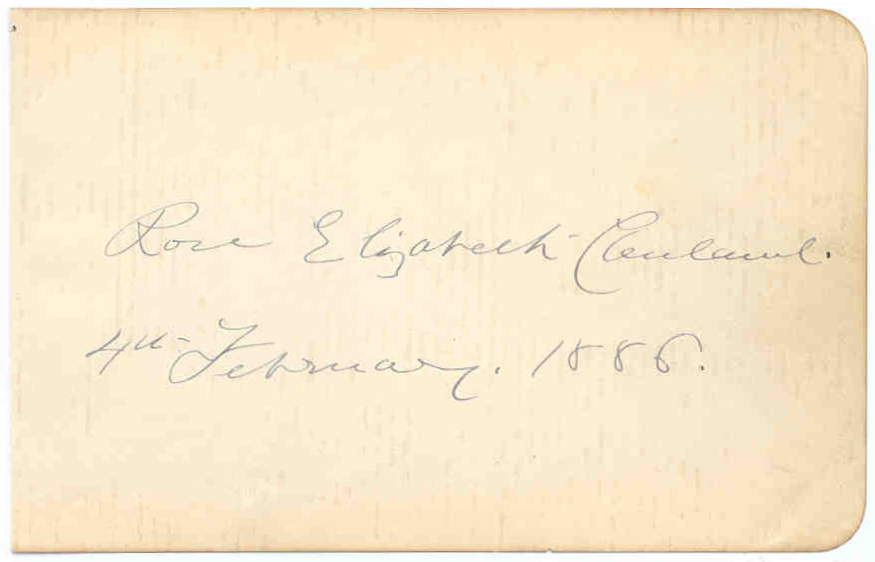 Rose Elizabeth Cleveland.
4th February. 1886.